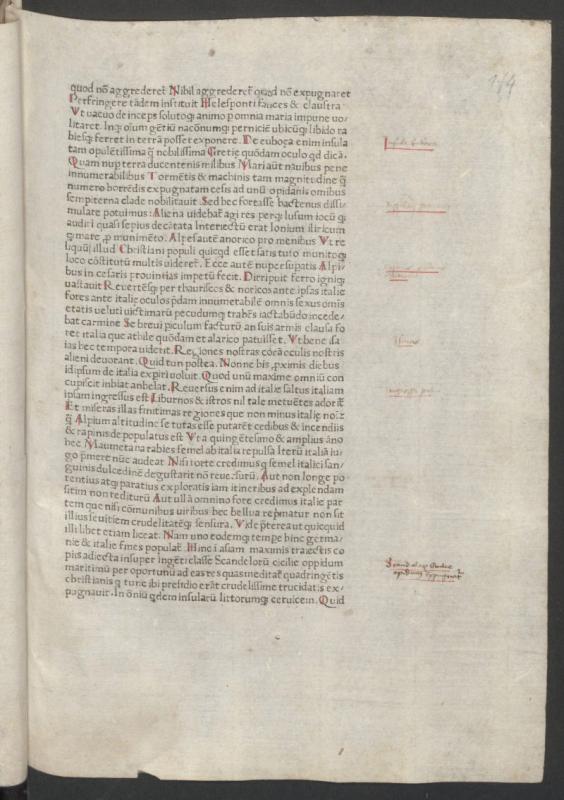 174
quod nõ aggrederet̃ Nihil aggrederet̃ quod nõ expugnaret
Perfringere tãdem instituit Helesponti fauces & claustra
Vt uacuo deinceps solutoq; animo p omnia maria impune uo
litaret. Inq; oĩum gẽtiũ nacõnumq; perniciẽ ubicũq; libido ra
biesq; ferret in terrã posset exponere. De euboça enim insula
tam opulẽtissima q̃ nobilissima Gretię quõdam oculo qđ dicã.
Quam nup terra ducentenis milibus Mari aũt nauibus pene
innumerabilibus Tormẽtis & machinis tam magnitudine q̃
numero horrẽdis expugnatam cesis ad unũ opidanis omĩbus
sempiterna clade nobilitauit Sed hec fortasse hactenus dissi
mulare potuimus: Aliena uidebat̃ agi res perq; lusum iocũ q;
audiri quasi sepius decãtata Interiectũ erat Ionium iliricum
q; mare p munimẽto. Alpes autẽ anorico pro menibus Vt re
liquũ illud Christiani populi quicqđ esset satis tuto munitoq;
loco cõstitutũ multis uideret̃. Ecce autẽ nuper supatis Alpi
bus in cesaris prouintias impetũ fecit. Dirripuit ferro igniq;
uastauit Reuertẽsq; per thauriscos & noricos ante ipsas italię
fores ante italię oculos p̃dam innumerabilẽ omnis sexus omĩs
etatis ueluti uictimarũ pecudumq; trabẽs iactabũdo incede,
bat carmine Se breui piculum facturũ an suis armis clausa fo
ret italia que athile quõdam et alarico patuisset. Vt bene isa
ias hec tempora uiderit. Regiones nostras corã oculis nostris
alieni deuorant. Quid tun postea. Nonne bis, pximis diebus
id ipsum de italia expiri uoluit. Quod unũ maxime omniũ con
cupiscit inhiat anhelat. Reuersus enim ad italię saltus italiam
ipsam ingressus est Liburnos & istros nil tale metuẽtes
Et miseras illas finitimas regiones que non minus italię
q̃ Alpium altitudine se tutas esse putarẽt cedibus & incendiis
& rapinis depopulatus est Vt a quingẽtesimo & amplius ãno
hec Maumetana rabies semel ab italia repulsa Iterũ italiã iu,
go p̃mere nũc audeat Nisi forte credimus q; semel italici san,
guinis dulcedinẽ degustarit nõ reuersurũ. Aut non longe po,
tentius atq; paratius exploratis iam itineribus ad explendam
sitim non rediturũ Aut ullã omnino fore credimus italie par
tem que nisi cõmunibus uiribus hec bellua reprimatur non sit
illius seuitiem crudelitatẽq; sensura. Vide p̃terea ut quicquid
illi libet etiam liceat. Nam uno eodemq; tempe hinc germa,
nię & italie fines populat̃ Hinc ĩ asiam maximis traiectis co
piis adiecta insuper ingẽti classe Scandelorũ cicilię oppidum
maritimũ per oportunũ ad eas res quas meditat̃ quadringẽtis
christianis q; tunc ibi presidio erãt crudelissime trucidatis ex,
pugnauit. In oĩniũ qđem insularũ littorumq; ceruicem. Quid
Scandelor Cicilie
opidum expugnat̃